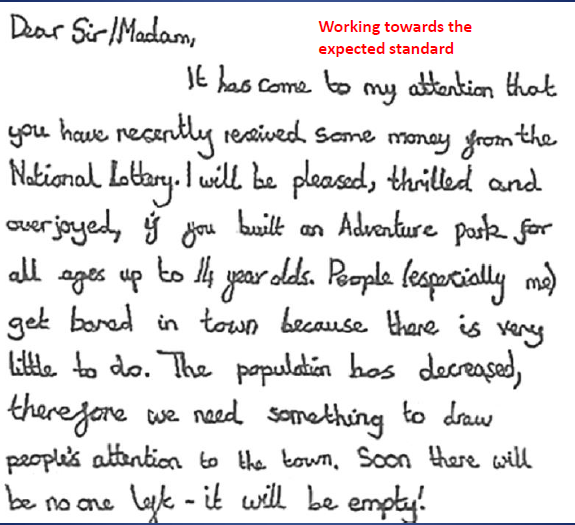 Dear Sir/Madam,
Working towards the
expected standard
It has come to my attention that
you have recently received some money from the
National Lottery. I will be pleased, thrilled and
overjoyed, if you built an Adventure park for
all ages up to 14 year olds. People (especially me)
get bored in town because there is very
little to do. The population has decreased,
therefore we need something to draw
people's attention to the town. Soon there will
be no one left - it will be empty!